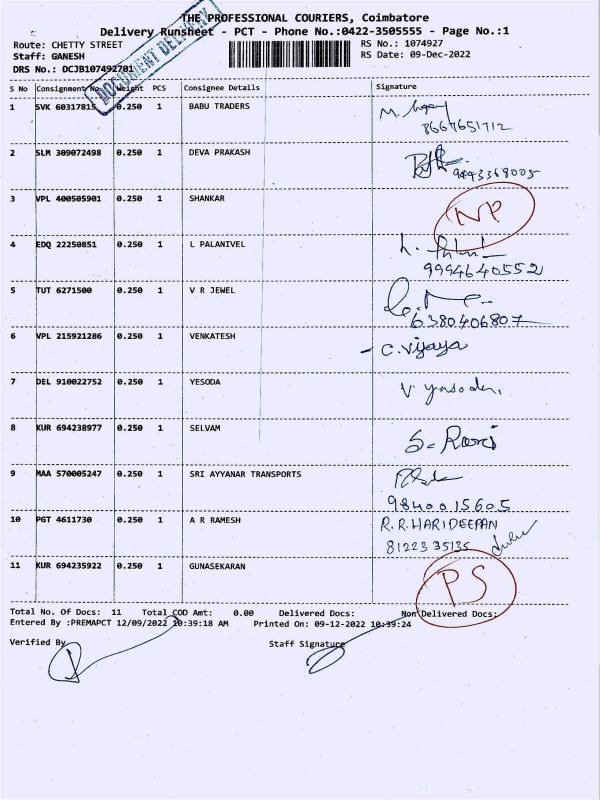 THE PROFESSIONAL COURIERS, Coimbatore
Delivery Runsheet - PCT - Phone No.:0422-3505555 - Page No.:1
Route: CHETTY STREET
RS No.: 1074927
Staff: GANESH
RS Date: 09-Dec-2022
DRS No.: DCJB107492701
DOCUMENT DELIVERY
S No Consignment No Weight PCS Consignee Details Signature
1 SVK 60317815 0.250 1 BABU TRADERS M.
8667651712
2 SLM 309072498 0.250 1 DEVA PRAKASH
9443369005
3 VPL 400505901 0.250 1 SHANKAR NP
4 EDQ 22250851 0.250 1 L PALANIVEL
9994640552
5 TUT 6271500 0.250 1 V R JEWEL
6380406807
6 VPL 215921286 0.250 1 VENKATESH - C.Vijaya
7 DEL 910022752 0.250 1 YESODA V yasoda,
8 KUR 694238977 0.250 1 SELVAM S- Ravi
9 MAA 570005247 0.250 1 SRI AYYANAR TRANSPORTS
9840015605
10 PGT 4611730 0.250 1 A R RAMESH R.R.HARIDEEPAN
8122335135
11 KUR 694235922 0.250 1 GUNASEKARAN PS
Total No. Of Docs: 11 Total COD Amt: 0.00 Delivered Docs: Non Delivered Docs:
Entered By :PREMAPCT 12/09/2022 10:39:18 AM Printed On: 09-12-2022 10:39:24
Verified By Staff Signature